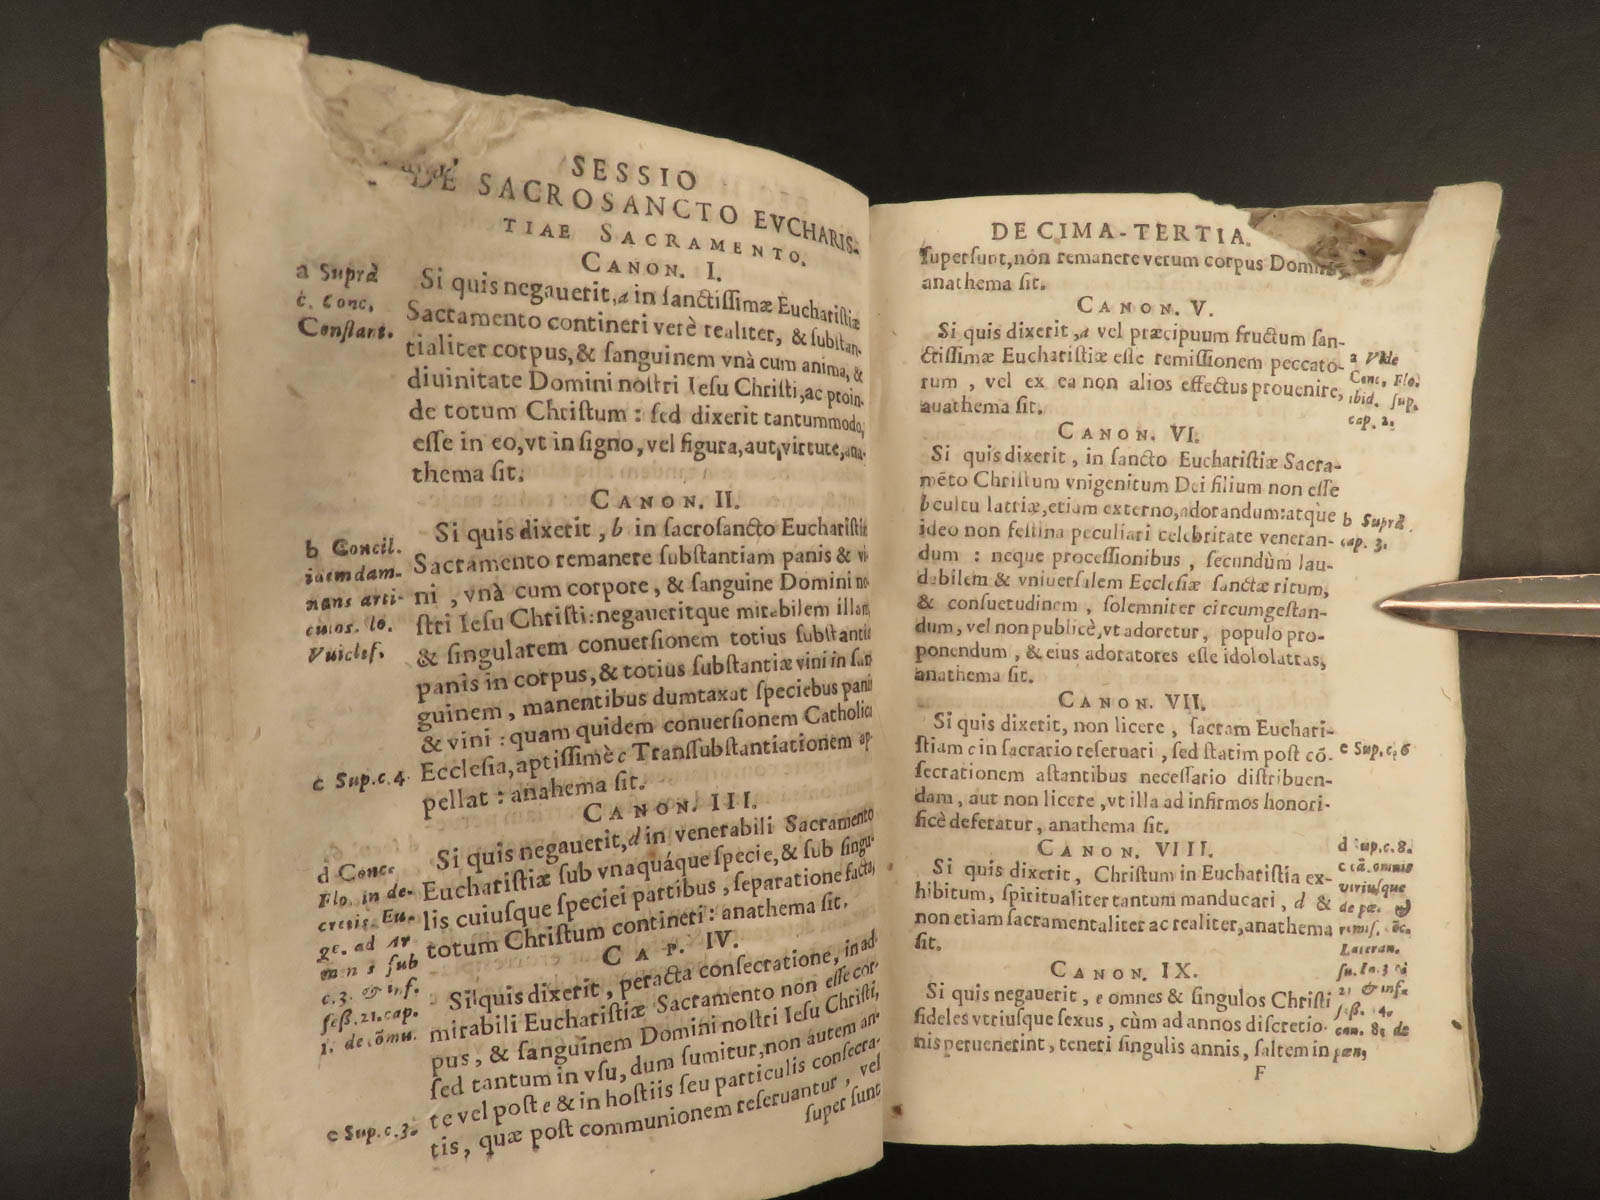 SESSIO
DE SACROSANCTO EVCHARIS-
TIAE SACRAMENTO.
CANON. I.
a Suprà
c. Conc.
Constant.
Si quis negauerit, a in sanctissimæ Eucharistiæ
Sacramento contineri verè realiter, & substan-
tialiter corpus, & sanguinem vnà cum anima, &
diuinitate Domini nostri Iesu Christi, ac proin-
de totum Christum : sed dixerit tantummodo,
esse in eo, vt in signo, vel figura, aut virtute, ana-
thema sit.
CANON. II.
b Concil.
idemdam-
nans arti-
culos. Io.
Vuiclef.
Si quis dixerit, b in sacrosancto Eucharistiæ
Sacramento remanere substantiam panis & vi-
ni, vnà cum corpore, & sanguine Domini no-
stri Iesu Christi: negaueritque mirabilem illam
& singularem conuersionem totius substantiæ
panis in corpus, & totius substantiæ vini in san-
guinem, manentibus dumtaxat speciebus panis
& vini : quam quidem conuersionem Catholica
Ecclesia, aptissimè c Transsubstantiationem ap-
pellat : anahema sit.
c Sup.c.4.
CANON. III.
d Conc.
Flo. in de-
cretis Eu-
ge. ad Ar
men s sub
c.3. & inf.
seß.21.cap.
1. de cõmu.
Si quis negauerit, d in venerabili Sacramento
Eucharistiæ sub vnaquáque specie, & sub singu-
lis cuiusque speciei partibus, separatione facta,
totum Christum contineri : anathema sit.
CAP. IV.
Si quis dixerit, peracta consecratione, in ad-
mirabili Eucharistiæ Sacramento non esse cor-
pus, & sanguinem Domini nostri Iesu Christi,
sed tantum in vsu, dum sumitur, non autem an-
te vel post e & in hostiis seu particulis consecra-
tis, quæ post communionem reseruantur, vel
e Sup.c.3.
super sunt
DECIMA-TERTIA.
supersunt, non remanere verum corpus Domini,
anathema sit.
CANON. V.
Si quis dixerit, a vel præcipuum fructum san-
ctissimæ Eucharistiæ esse remissionem peccato-
rum, vel ex ea non alios effectus prouenire,
auathema sit.
a Vide
Conc. Flo.
ibid. sup.
cap. 2.
CANON. VI.
Si quis dixerit, in sancto Eucharistiæ Sacra-
mēto Christum vnigenitum Dei filium non esse
b cultu latriæ, etiam externo, adorandum: atque
ideo non festina peculiari celebritate veneran-
dum : neque processionibus, secundùm lau-
dabilem & vniuersalem Ecclesiæ sanctæ ritum,
& consuetudinem, solemniter circumgestan-
dum, vel non publicè, vt adoretur, populo pro-
ponendum, & eius adoratores esse idololatras,
anathema sit.
b Suprà.
cap. 3.
CANON. VII.
Si quis dixerit, non licere, sacram Euchari-
stiam c in sacrario reseruari, sed statim post cõ-
secrationem astantibus necessario distribuen-
dam, aut non licere, vt illa ad infirmos honori-
ficè deferatur, anathema sit.
c Sup.c.6
CANON. VIII.
Si quis dixerit, Christum in Eucharistia ex-
hibitum, spiritualiter tantum manducari, d &
non etiam sacramentaliter ac realiter, anathema
sit.
d Sup.c.8.
e cã. omnis
vtriusque
de pæ. &
remis. &c.
Lateran.
CANON. IX.
Si quis negauerit, e omnes & singulos Christi
fideles vtriusque sexus, cùm ad annos discretio-
nis peruenerint, teneri singulis annis, saltem in
21 & inf.
seß. 14.
can. 8. de
pæn,
F